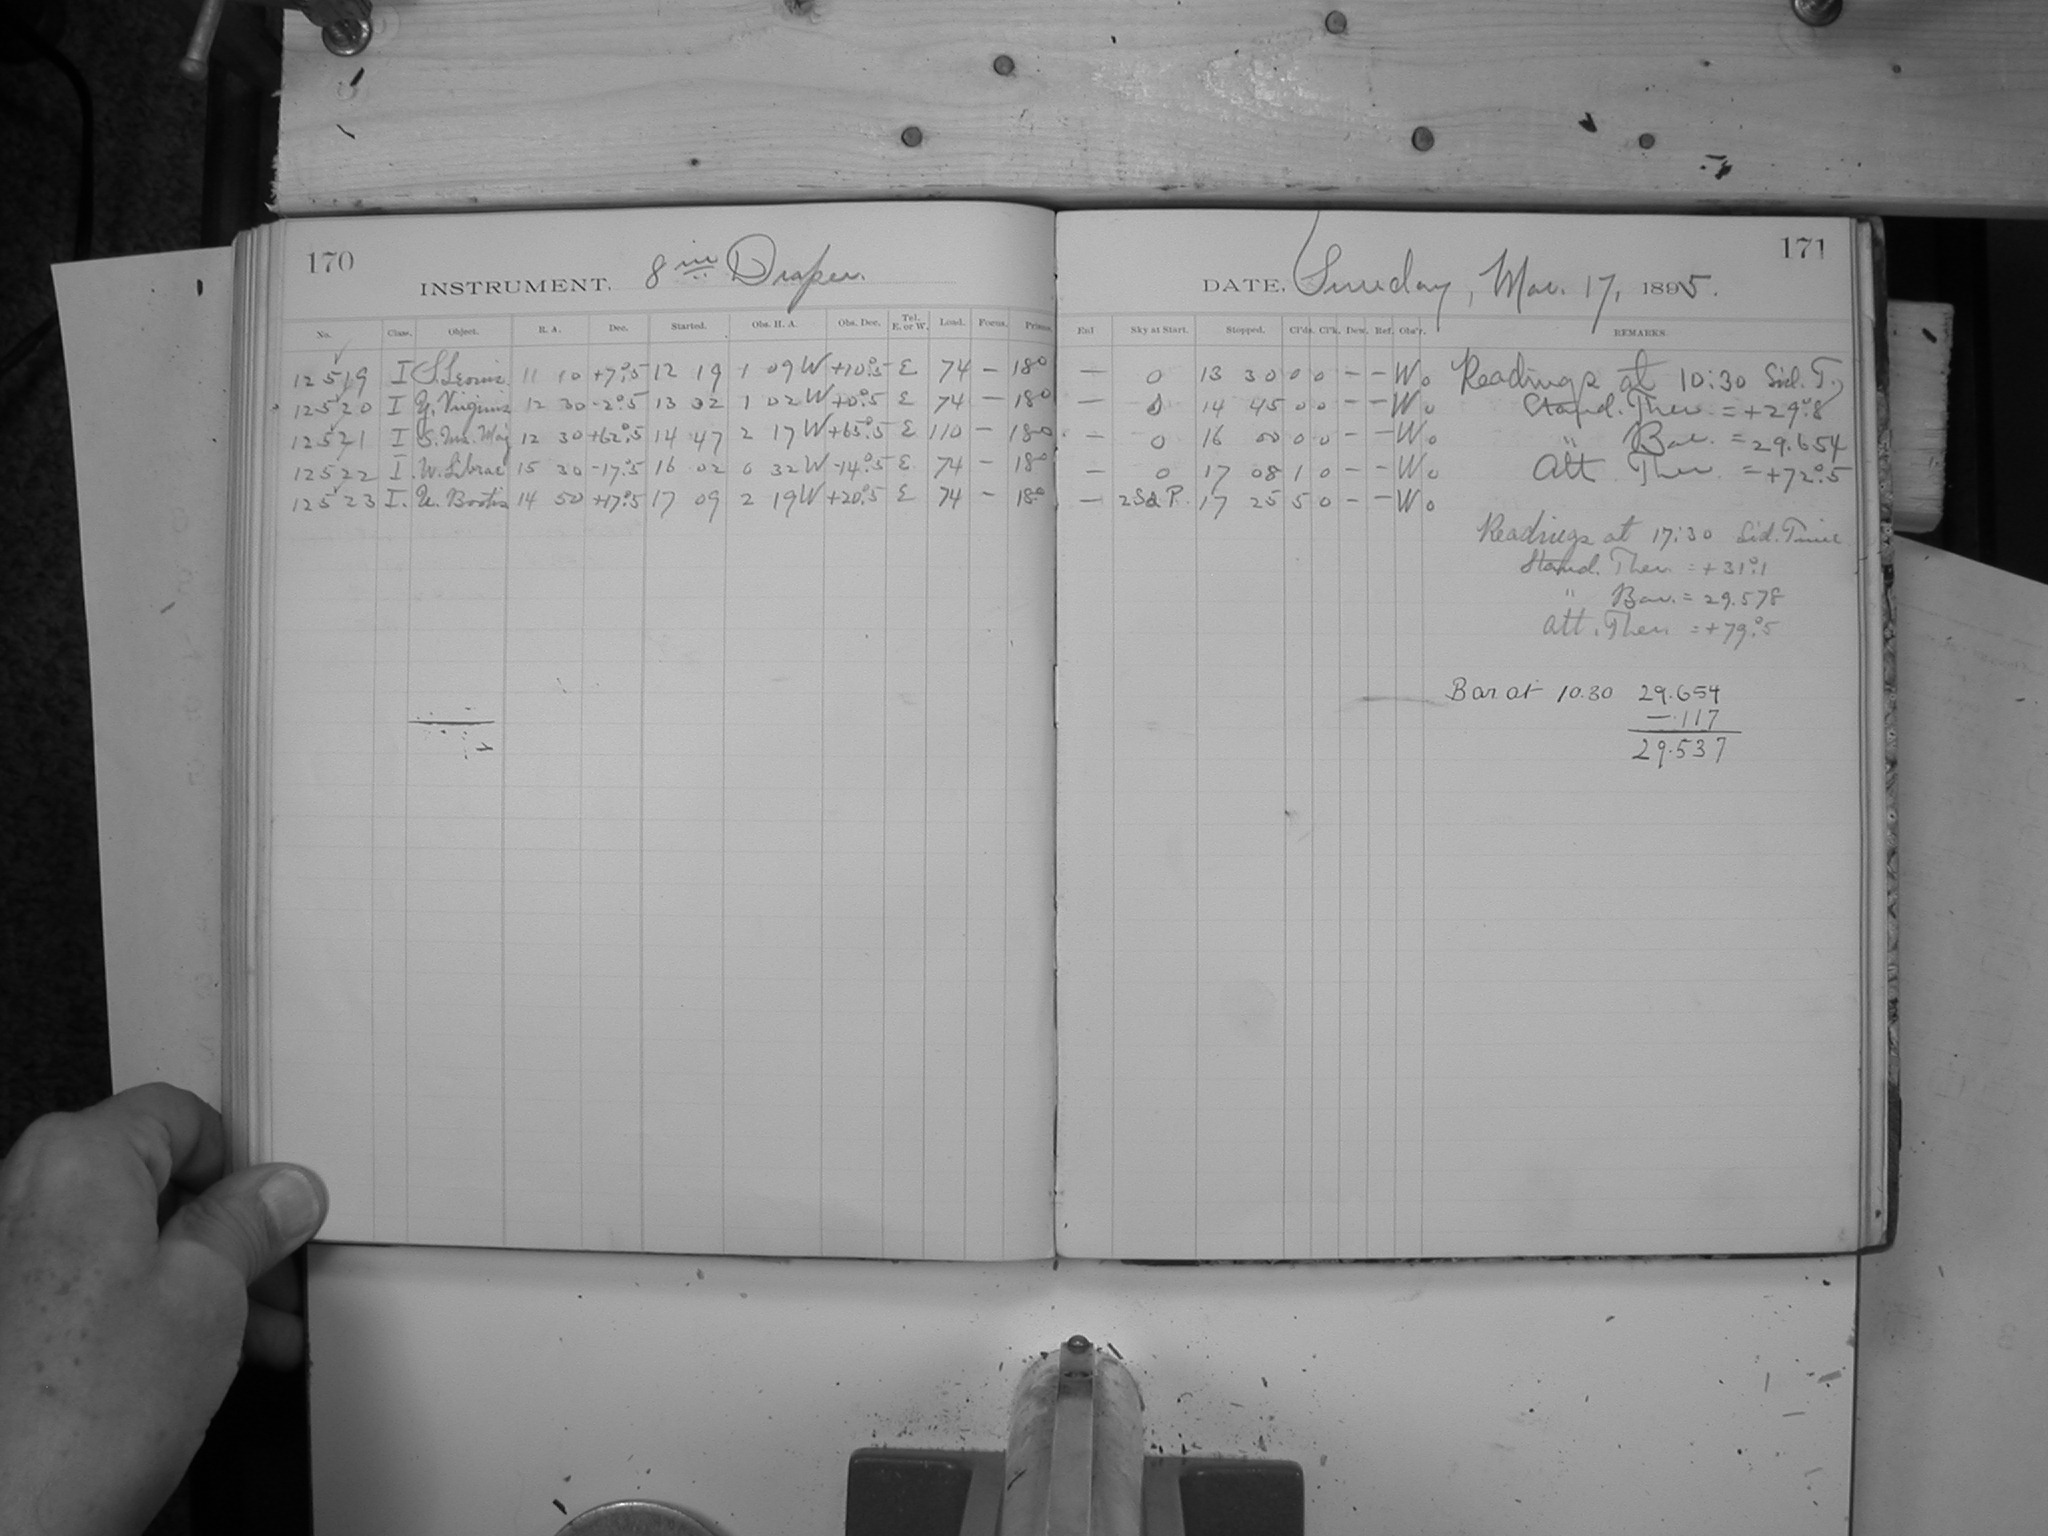 170
INSTRUMENT. 8 in Draper.
No. Class. Object. R. A. Dec. Started. Obs. H. A. Obs. Dec. Tel. E. or W. Load. Focus. Prisms.
12519 I S. Leonis 11 10 +7°.5 12 19 1 09 W +10°.5 E 74 – 180
12520 I Y. Virginis 12 30 -2°.5 13 02 1 02 W +0°.5 E 74 – 180
12521 I S. Urs. Maj 12 30 +62°.5 14 47 2 17 W +65°.5 E 110 – 180
12522 I. W. Librae 15 30 -17°.5 16 02 0 32 W -14°.5 E 74 – 180
12523 I. U. Bootis 14 50 +17°.5 17 09 2 19 W +20°.5 E 74 – 180
171
DATE. Sunday, Mar. 17, 1895.
Exl Sky at Start. Stopped. Cl'ds. Cl'k. Dew. Ref. Obs'r. REMARKS.
— 0 13 30 0 0 – – Wo Readings at 10:30 Sid. T.
— 0 14 45 0 0 – – Wo Stand. Ther. = +29°.8
— 0 16 00 0 0 – – Wo " Bar. = 29.654
— 0 17 08 1 0 – – Wo Att. Ther. = +72°.5
— 17 25 5 0 – – Wo
Readings at 17:30 Sid. Time
Stand. Ther. = +31°.1
" Bar. = 29.578
Att. Ther. = +79°.5
Bar at 10.30 29.654
— .117
29.537